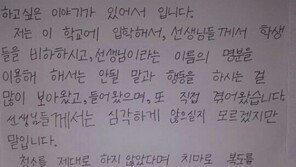 하고싶은 이야기가 있어서 입니다.
저는 이 학교에 입학해서, 선생님들께서 학생
들을 비하하시고, 선생님이라는 이름의 명분을
이용해 해서는 안될 말과 행동을 하시는 걸
많이 보아왔고, 들어왔으며, 또 직접 겪어왔습니다.
선생님들께서는 심각하게 않으실지 모르겠지만
말입니다.
청소를 제대로 하지 않았다며 치마로 복도를